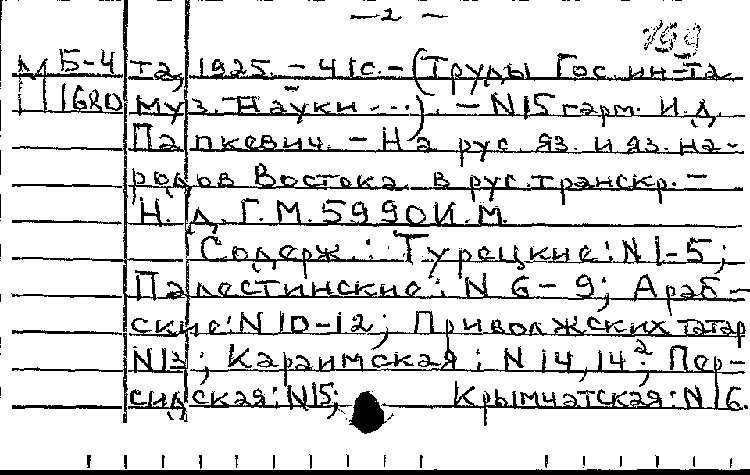 — 2 —
199
М Б-4 та, 1925. – 41с. – (Труды Гос. ин-та
1680 муз. науки ...). – N 15 гарм. И. Д.
Папкевич. – На рус. яз. и яз. на-
родов Востока в рус. транскр. –
Н. д. Г. М. 5990 И. М.
Содерж.: Турецкие: N 1-5;
Палестинские: N 6-9; Араб-
ские: N 10-12; Приволжских татар
N 13; Караимская: N 14, 14²; Пер-
сидская: N 15; Крымчатская: N 16.